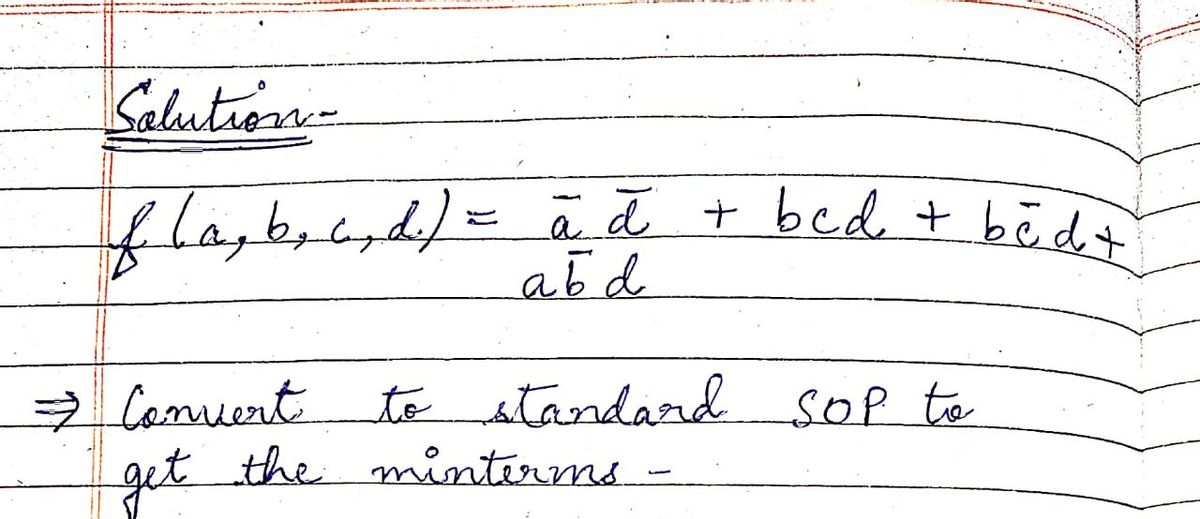 Solution-
f(a, b, c, d) = ā d̄ + bcd + bc̄d +
ab̄d
⇒ Convert to standard SOP to
get the minterms -